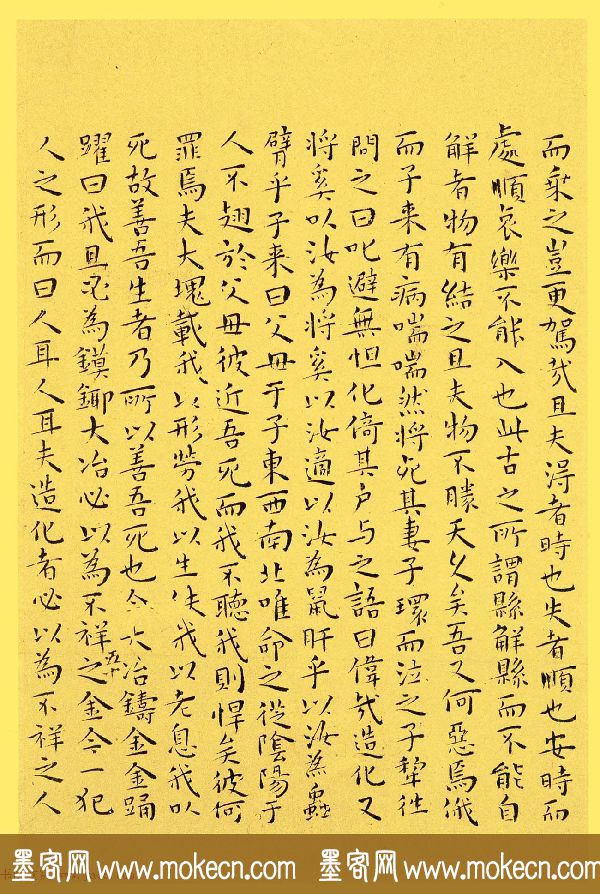 而乘之豈更駕哉且夫淂者時也失者順也安時而
處順哀樂不能入也此古之所謂縣解縣而不能自
解者物有結之且夫物不勝天久矣吾又何惡焉俄
而子来有病喘喘然將死其妻子環而泣之子犂往
問之曰叱避無怛化倚其户与之語曰偉哉造化又
將奚以汝為將奚以汝適以汝為鼠肝乎以汝為蟲
臂乎子来曰父母于子東西南北唯命之從陰陽于
人不翅於父母彼近吾死而我不聽我則悍矣彼何
罪焉夫大塊載我以形勞我以生佚我以老息我以
死故善吾生者乃所以善吾死也今大冶鑄金金踊
躍曰我且必為鏌鋣大冶必以為不祥之金今一犯
人之形而曰人耳人耳夫造化者必以為不祥之人
墨客网 www.mokecn.com 墨客网 www.mokecn.com